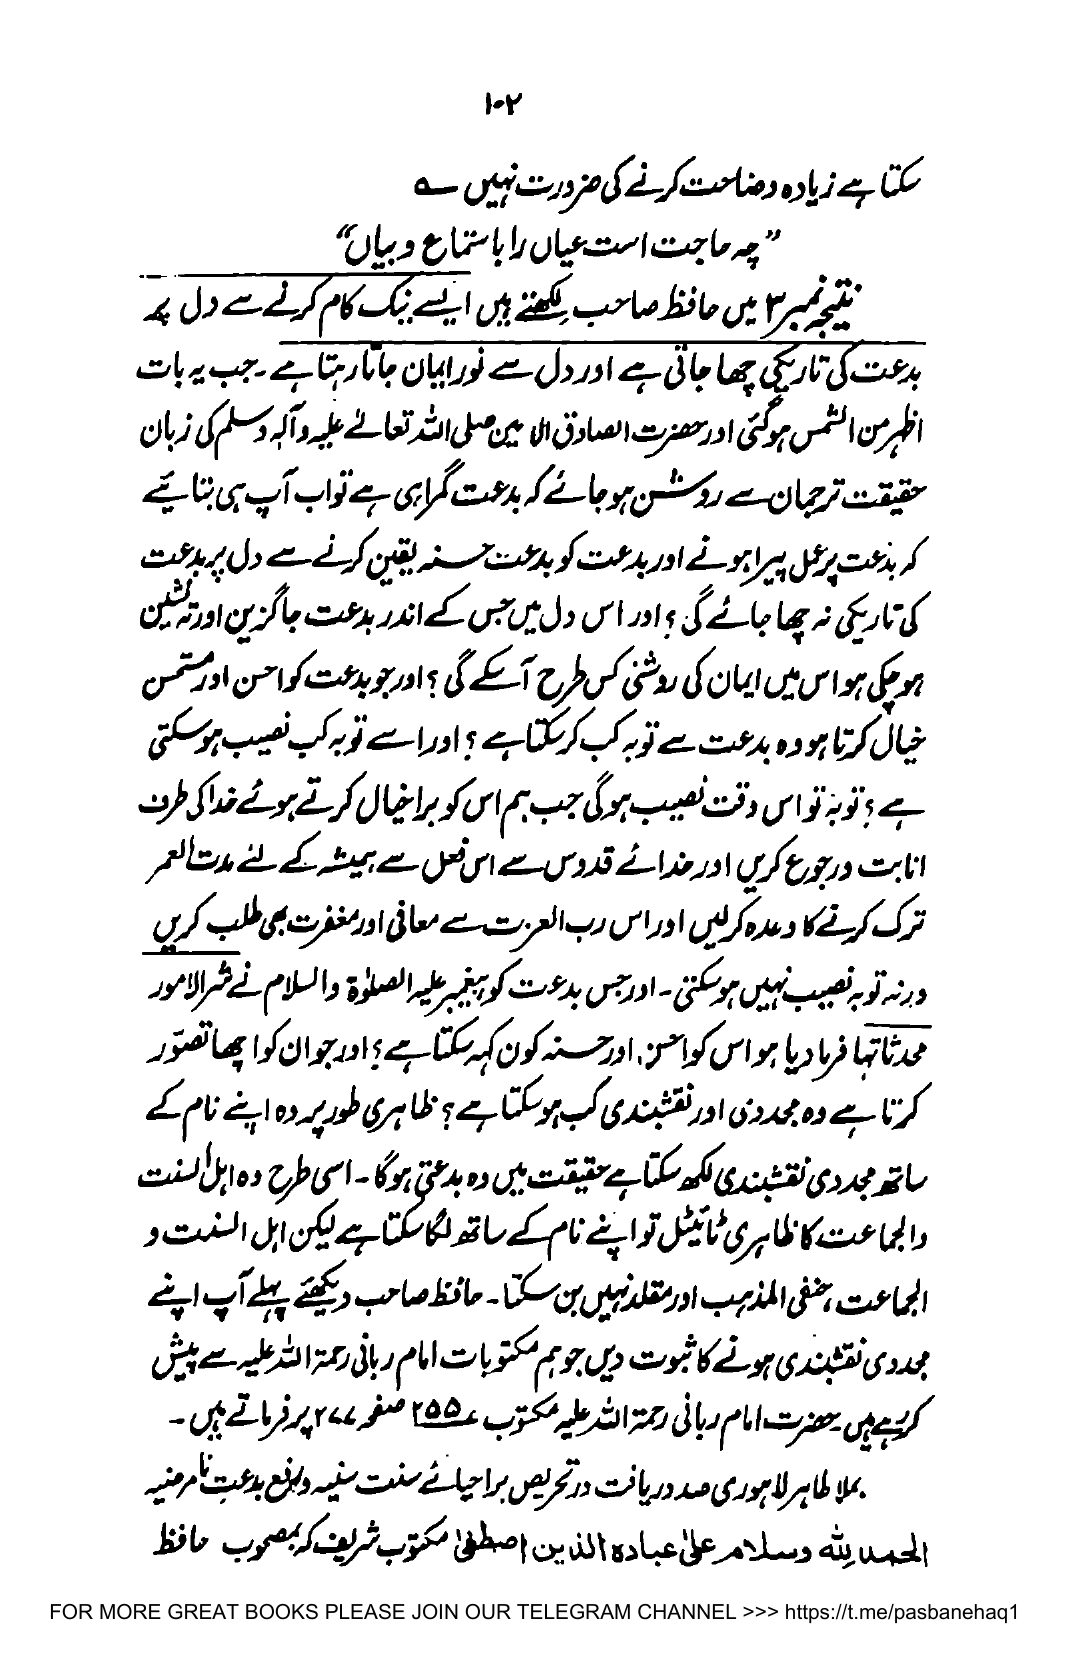 ۱۰۲
سکتا ہے زیادہ وضاحت کرنے کی ضرورت نہیں ؎
”چہ حاجت است عیاں را باستماع و بیاں“
نتیجہ نمبر ۳ میں حافظ صاحب لکھتے ہیں ایسے نیک کام کرنے سے دل پر
بدعت کی تاریکی چھا جاتی ہے اور دل سے نور ایمان جاتا رہتا ہے۔ جب یہ بات
اظہر من الشمس ہوگئی اور حضرت الصادق الامین صلی اللہ تعالےٰ علیہ وآلہ وسلم کی زبان
حقیقت ترجمان سے روشن ہو جائے کہ بدعت گمراہی ہے تو اب آپ ہی بتائیے
کہ بدعت پر عمل پیرا ہونے اور بدعت کو بدعت حسنہ یقین کرنے سے دل پر بدعت
کی تاریکی نہ چھا جائے گی ؟ اور اس دل میں جس کے اندر بدعت جاگزین اور تہ نشین
ہوچکی ہو اس میں ایمان کی روشنی کس طرح آسکے گی ؟ اور جو بدعت کو احسن اور مستحسن
خیال کرتا ہو وہ بدعت سے توبہ کب کرسکتا ہے ؟ اور اسے توبہ کب نصیب ہوسکتی
ہے ؟ توبہ تو اس وقت نصیب ہوگی جب ہم اس کو برا خیال کرتے ہوئے خدا کی طرف
انابت ورجوع کریں اور خدائے قدوس سے اس فعل سے ہمیشہ کے لئے مدت العمر
ترک کرنے کا وعدہ کرلیں اور اس رب العزت سے معافی اور مغفرت بھی طلب کریں
ورنہ توبہ نصیب نہیں ہوسکتی۔ اور جس بدعت کو پیغمبر علیہ الصلوٰۃ والسلام نے شر الامور
محدثاتہا فرما دیا ہو اس کو احسن اور حسنہ کون کہہ سکتا ہے ؟ اور جو ان کو اچھا تصوّر
کرتا ہے وہ مجددی اور نقشبندی کب ہوسکتا ہے ؟ ظاہری طور پر وہ اپنے نام کے
ساتھ مجددی نقشبندی لکھ سکتا ہے حقیقت میں وہ بدعتی ہوگا۔ اسی طرح وہ اہل السنت
والجماعت کا ظاہری ٹائیٹل تو اپنے نام کے ساتھ لگا سکتا ہے لیکن اہل السنت و
الجماعت، حنفی المذہب اور مقلد نہیں بن سکتا۔ حافظ صاحب دیکھئے پہلے آپ اپنے
مجددی نقشبندی ہونے کا ثبوت دیں جو ہم مکتوبات امام ربانی رحمۃ اللہ علیہ سے پیش
کر رہے ہیں۔ حضرت امام ربانی رحمۃ اللہ علیہ مکتوب ۲۵۵ صفحہ ۲۷۷ پر فرماتے ہیں۔
بملا طاہر لاہوری صدور یافت در تحریص بر احیائے سنت سنیہ ورفع بدعت نامرضیہ
الحمد للہ وسلام علیٰ عبادہ الذین اصطفیٰ مکتوب شریف کہ بمصحوب حافظ
FOR MORE GREAT BOOKS PLEASE JOIN OUR TELEGRAM CHANNEL >>> https://t.me/pasbanehaq1